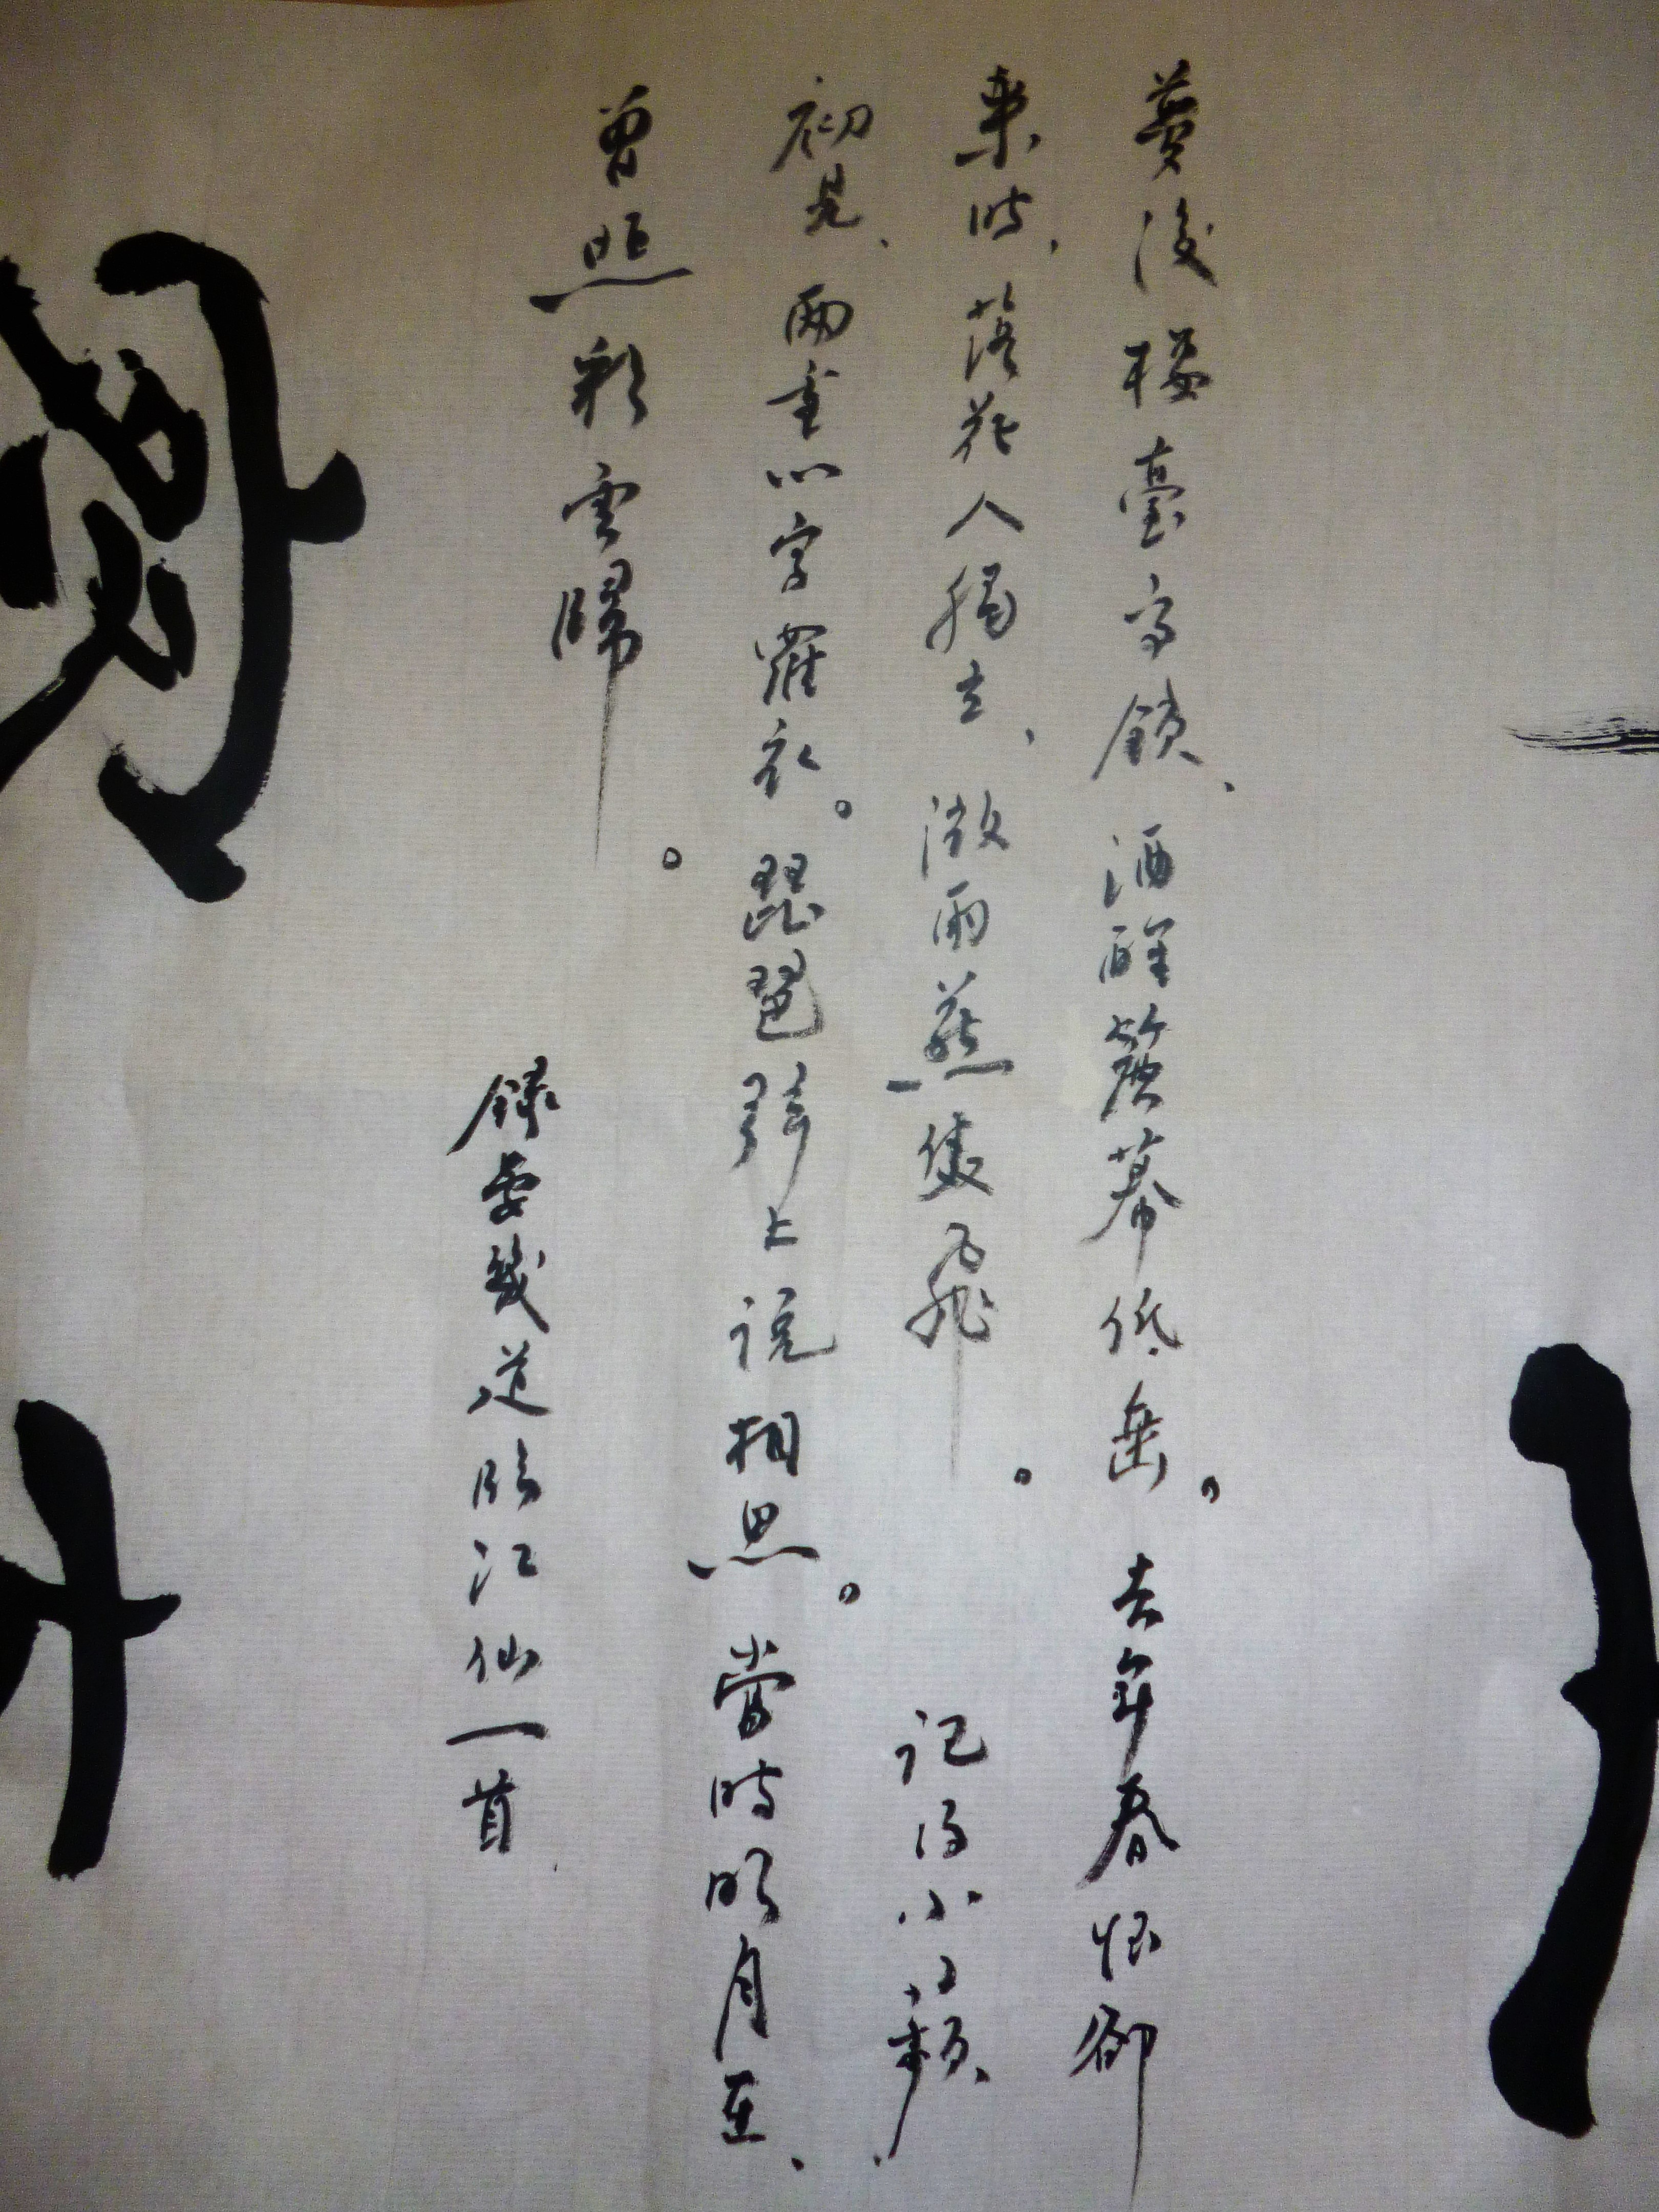 夢後樓臺高鎖、酒醒簾幕低垂。去年春恨卻
來時、落花人獨立、微雨燕雙飛。記得小蘋、
初見、兩重心字羅衣。琵琶弦上說相思。當時明月在、
曾照彩雲歸。
錄晏幾道臨江仙一首